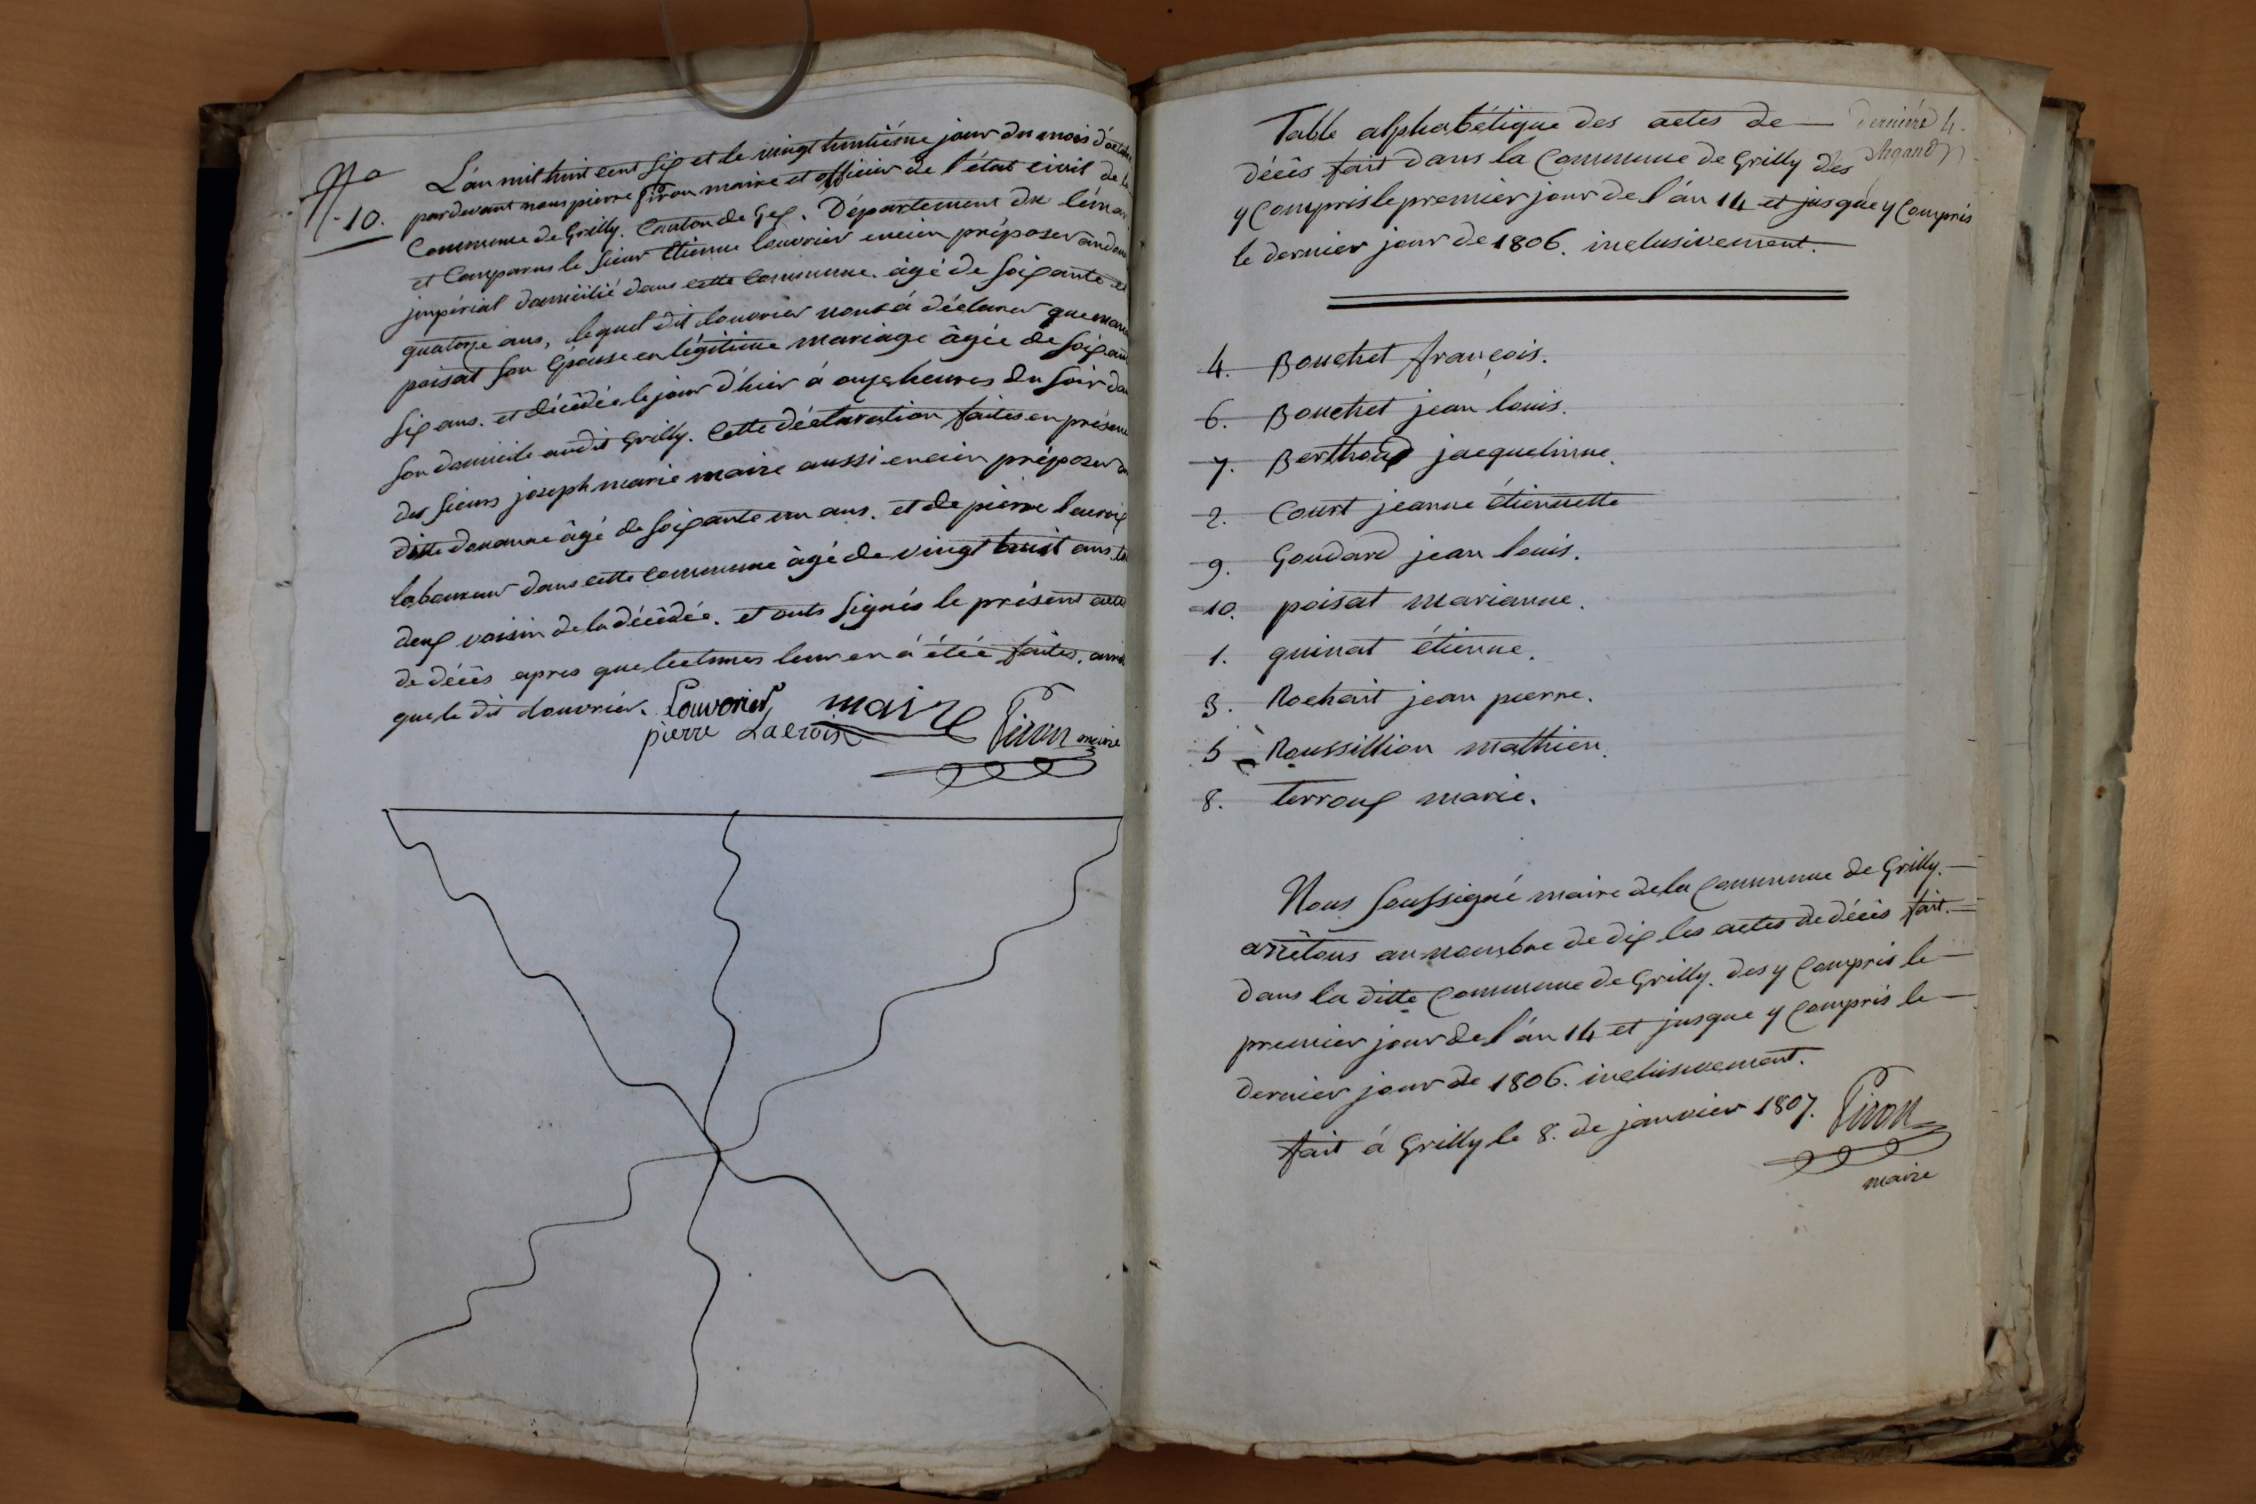 No
10.
L'an mil huit cent six et le vingt huitiésme jour du mois d'octobre
pardevant nous pierre Piron maire et officier de l'état civil de la
Commune de Grilly. Canton de Gex. Département du léman
et Comparus le Sieur Etienne louvrier encien préposer
impérial domicilié dans cette commune. âgé de soixante et
quatorze ans, lequel dit louvrier nous à déclarer que
poisat son épouse en légitime mariage âgée de soixante
six ans. et décédée le jour d'hier á onze heures du soir dans
son domicile audit Grilly. Cette déclaration faites en présence
des sieurs joseph marie maire aussi encien préposer
ditte douanne âgé de soixante un ans. et de pierre lacroix
laboureur dans cette commune âgé de vingt huit ans.
deux voisin de la décédée. et onts signés le présent acte
de décês apres que lectures leur en á étée faites, ainsi
que le dit louvrier. Louvorier maire
pierre Lacroix Piron maire
Table alphabétique des actes de dernière 4.
décês fait dans la Commune de Grilly dés
y Compris le premier jour de l'ân 14 et jusque y Compris
le dernier jour de 1806. inclusivement.
4. Bouchet françois.
6. Bouchet jean louis.
7. Berthoud jacquelinne.
2. Court jeanne étiennette
9. Goudard jean louis.
10. poisat marianne.
1. quinat étienne.
3. Rochait jean pierre.
5 Roussillion mathieu.
8. terroux marie.
Nous soussigné maire de la Commune de Grilly.
arrêtons au nombre de dix les actes de décês fait.
dans la ditte Commune de Grilly. des y Compris le
premier jour de l'ân 14 et jusque y Compris le
dernier jour de 1806. inclusivement.
fait á Grilly le 8. de janvier 1807. Piron
maire